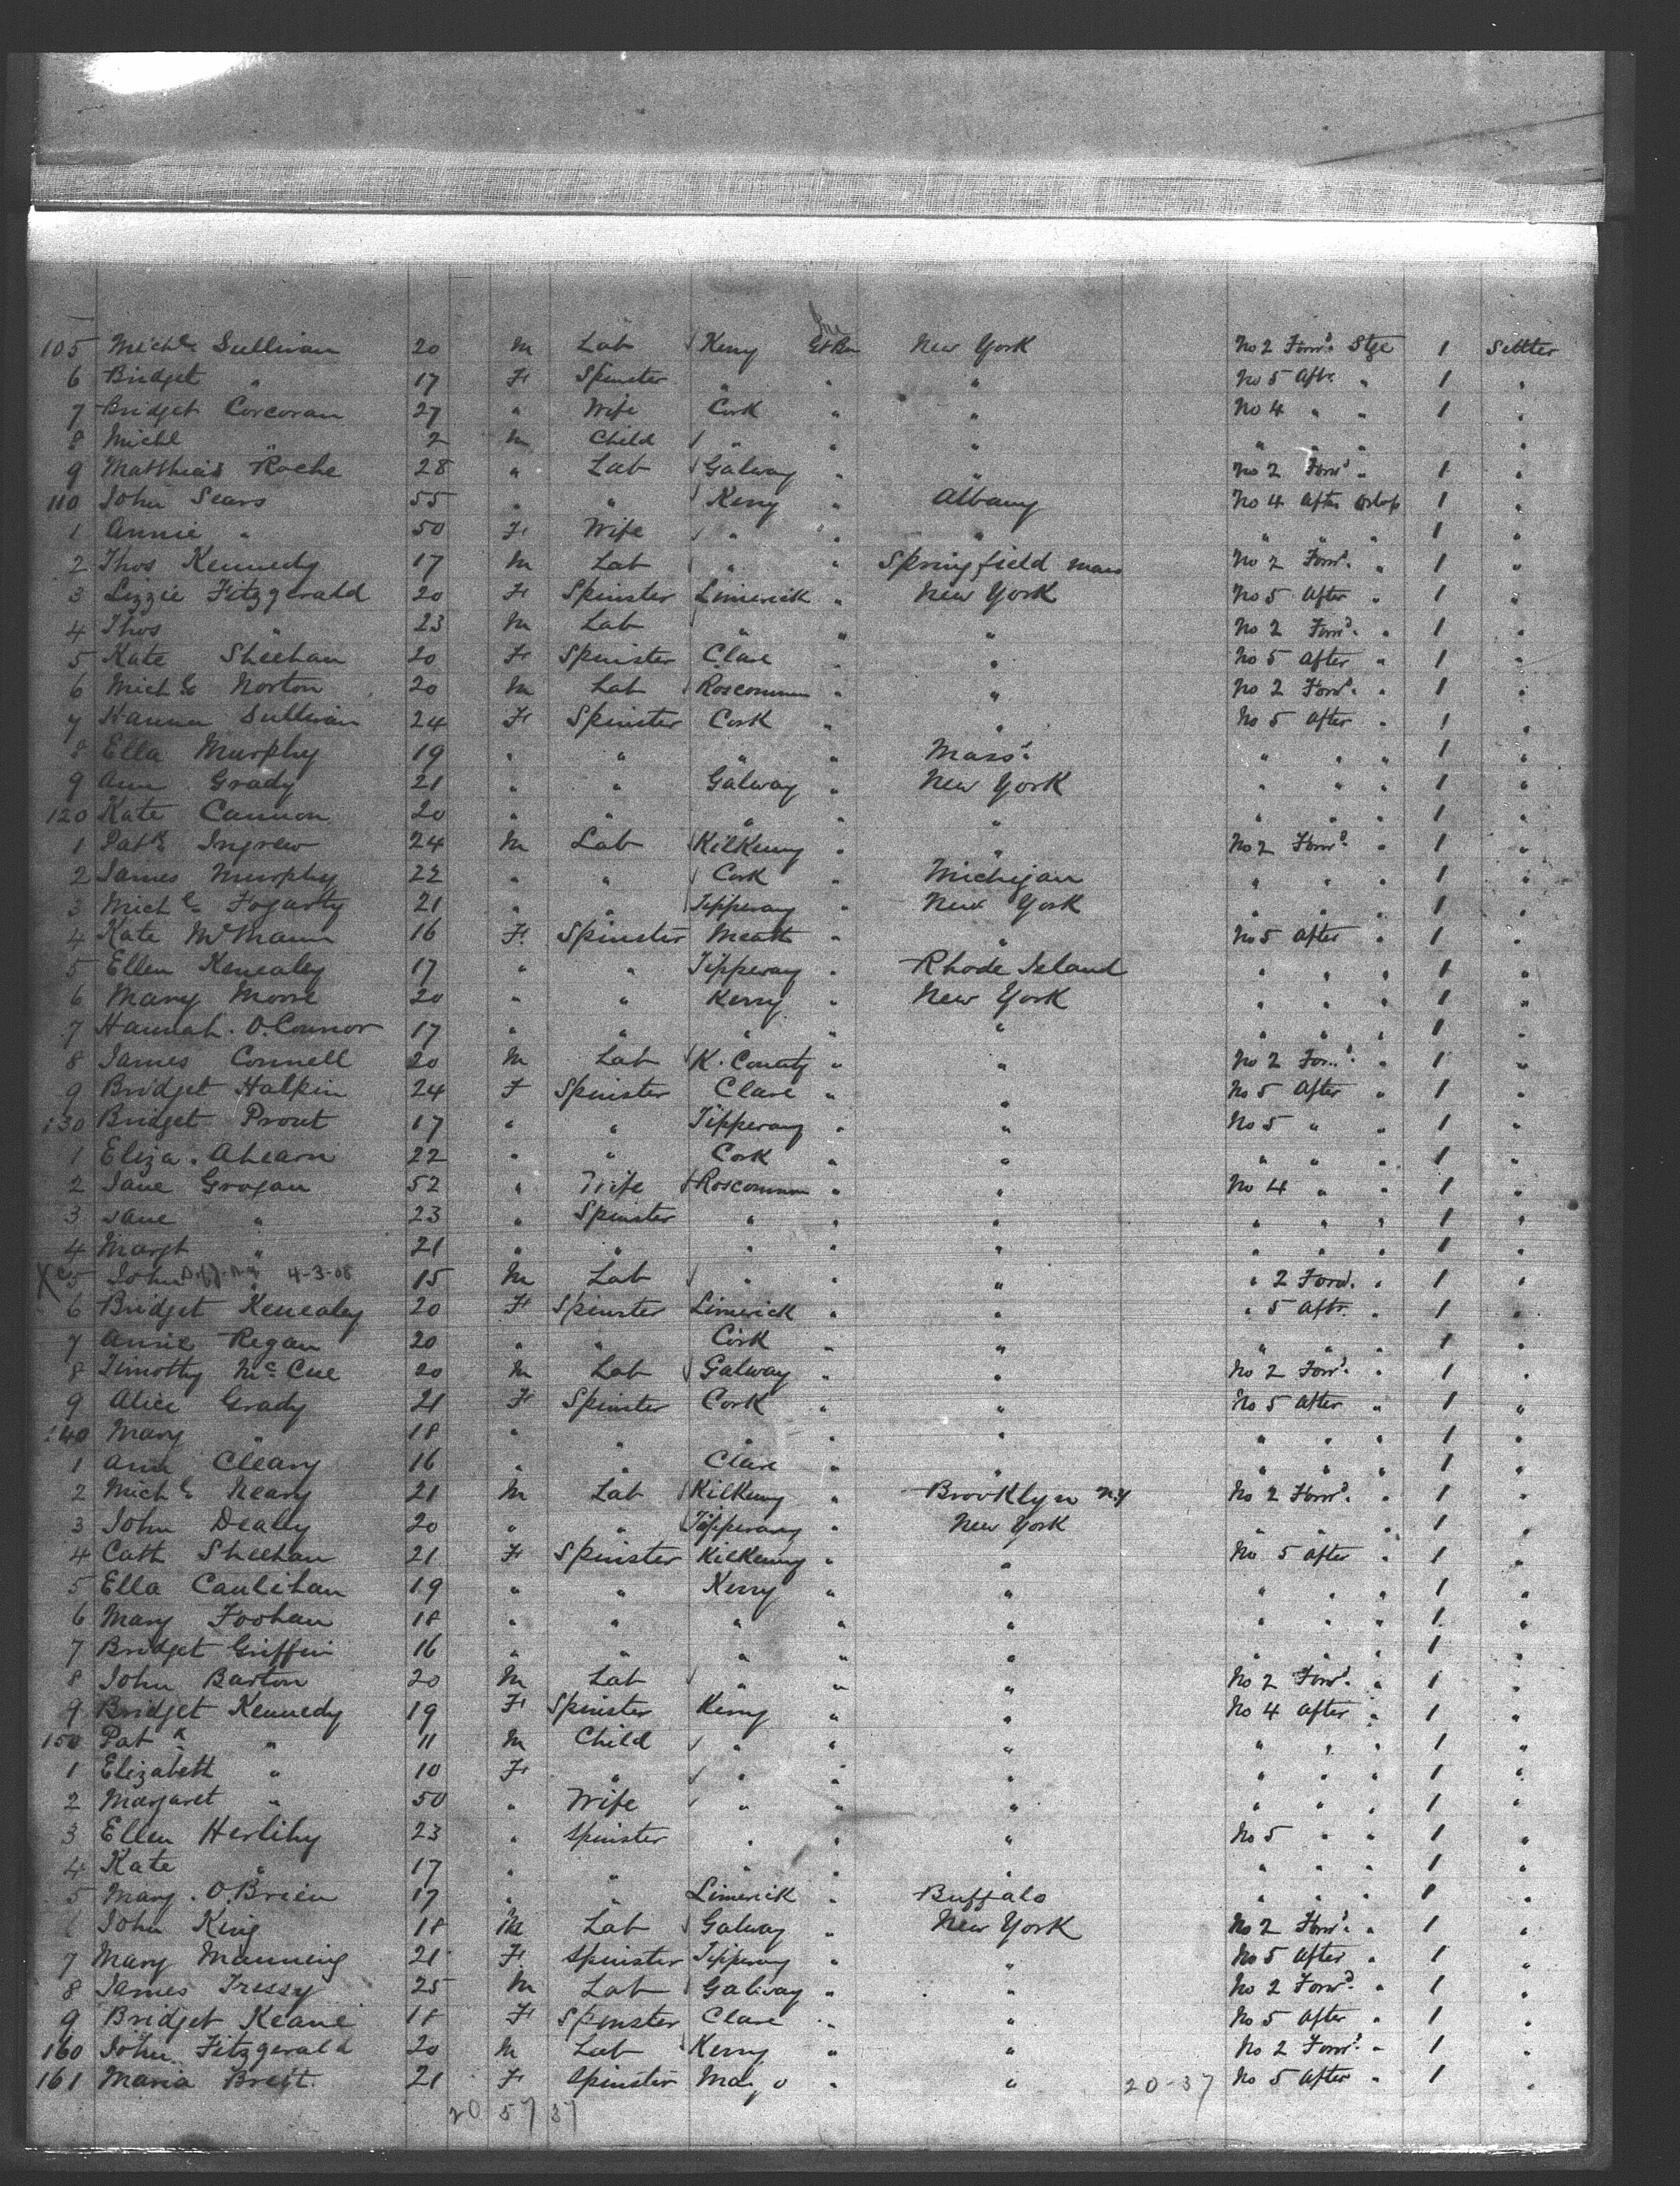 105 Michl Sullivan 20 M Lab Kerry Gt Bn New York No 2 Forwd. Stge 1 Settler
6 Bridget " 17 F Spinster " " " No 5 Aftr. " 1 "
7 Bridget Corcoran 27 " Wife Cork " " No 4 " " 1 "
8 Michl " 2 M Child " " " " " " 1 "
9 Matthias Roche 28 " Lab Galway " " No 2 Forwd. " 1 "
110 John Sears 55 " " Kerry " Albany No 4 After Orlop 1 "
1 Annie " 50 F Wife " " " " " " 1 "
2 Thos Kennedy 17 M Lab " " Springfield Mass No 2 Forwd. " 1 "
3 Lizzie Fitzgerald 20 F Spinster Limerick " New York No 5 After " 1 "
4 Thos " 23 M Lab " " " No 2 Forwd. " 1 "
5 Kate Sheehan 20 F Spinster Clare " " No 5 After " 1 "
6 Michl Norton 20 M Lab Roscommon " " No 2 Forwd. " 1 "
7 Hanna Sullivan 24 F Spinster Cork " " No 5 After " 1 "
8 Ella Murphy 19 " " " " Mass. " " " 1 "
9 Ann Grady 21 " " Galway " New York " " " 1 "
120 Kate Cannon 20 " " " " " " " " 1 "
1 Patk Ingrew 24 M Lab Kilkenny " " No 2 Forwd " 1 "
2 James Murphy 22 " " Cork " Michigan " " " 1 "
3 Michl Fogarty 21 " " Tipperary " New York " " " 1 "
4 Kate McMann 16 F. Spinster Meath " " No 5 After " 1 "
5 Ellen Kenealey 17 " " Tipperary " Rhode Island " " " 1 "
6 Mary Moore 20 " " Kerry " New York " " " 1 "
7 Hannah. O.Connor 17 " " " " " " " " 1 "
8 James Connell 20 M Lab K. County " " No 2 Forwd. " 1 "
9 Bridget Halpin 24 F Spinster Clare " " No 5 After " 1 "
130 Bridget Prout 17 " " Tipperary " " No 5 " " 1 "
1 Eliza. Ahearn 22 " " Cork " " " " " 1 "
2 Jane Grogan 52 " Wife Roscommon " " No 4 " " 1 "
3 Jane " 23 " Spinster " " " " " " 1 "
4 Margt " 21 " " " " " " " " 1 "
5 John 4-3-08 15 M Lab " " " " 2 Forwd. " 1 "
6 Bridget Kenealey 20 F Spinster Limerick " " " 5 Aftr " 1 "
7 Annie Regan 20 " " Cork " " " " " 1 "
8 Timothy McCue 20 M Lab Galway " " No 2 Forwd. " 1 "
9 Alice Grady 21 F Spinster Cork " " No 5 After " 1 "
140 Mary " 18 " " " " " " " " 1 "
1 Ann Cleary 16 " " Clare " " " " " 1 "
2 Michl Neary 21 M Lab Kilkenny " Brooklyn N.Y No 2 Forwd. " 1 "
3 John Dealy 20 " " Tipperary " New York " " " 1 "
4 Cath Sheehan 21 F Spinster Kilkenny " " No 5 After " 1 "
5 Ella Caulihan 19 " " Kerry " " " " " 1 "
6 Mary Foohan 18 " " " " " " " " 1 "
7 Bridget Griffin 16 " " " " " " " " 1 "
8 John Barton 20 M Lab " " " No 2 Forwd. " 1 "
9 Bridget Kennedy 19 F Spinster Kerry " " No 4 After " 1 "
150 Patk " 11 M Child " " " " " " 1 "
1 Elizabeth " 10 F " " " " " " " 1 "
2 Margaret " 50 " Wife " " " " " " 1 "
3 Ellen Herlihy 23 " Spinster " " " No 5 " " 1 "
4 Kate " 17 " " " " " " " " 1 "
5 Mary. O.Brien 17 " " Limerick " Buffalo " " " 1 "
6 John King 18 M Lab Galway " New York No 2 Forwd. " 1 "
7 Mary Manning 21 F. Spinster Tipperary " " No 5 After " 1 "
8 James Tressy 25 M Lab Galway " " No 2 Forwd. " 1 "
9 Bridget Keane 18 F Spinster Clare " " No 5 After " 1 "
160 John Fitzgerald 20 M Lab Kerry " " No 2 Forwd. " 1 "
161 Maria Brett 21 F Spinster Mayo " " 20-37 No 5 After " 1 "
20 57 37